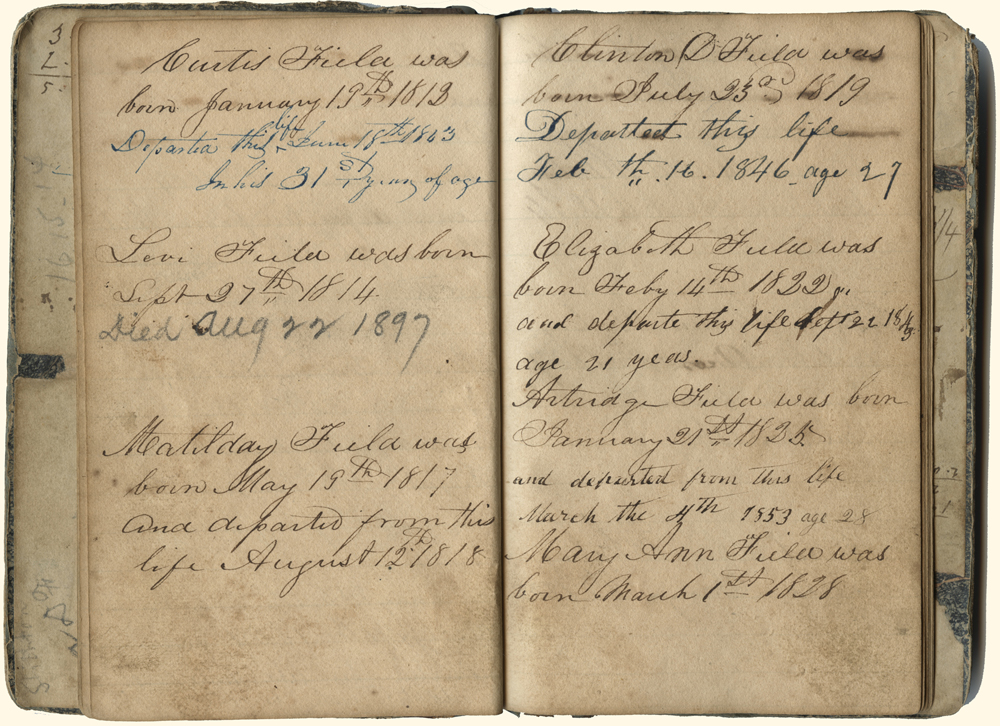 Curtis Field was
born January 19th 1813
Departed this life June 18th 1843
In his 31st year of age
Levi Field was born
Sept 27th 1814
Died Aug 22 1897
Matilday Field was
born May 19th 1817
and departed from this
life August 12th 1818
Clinton D Field was
born July 23rd 1819
Departed this life
Feb th. 16. 1846 age 27
Elizabeth Field was
born Feby 14th 1822
and departe this life Sept 22 1843
age 21 yeas.
Artridge Field was born
January 21st 1825
and departed from this life
March the 4th 1853 age 28
Mary Ann Field was
born March 1st 1828